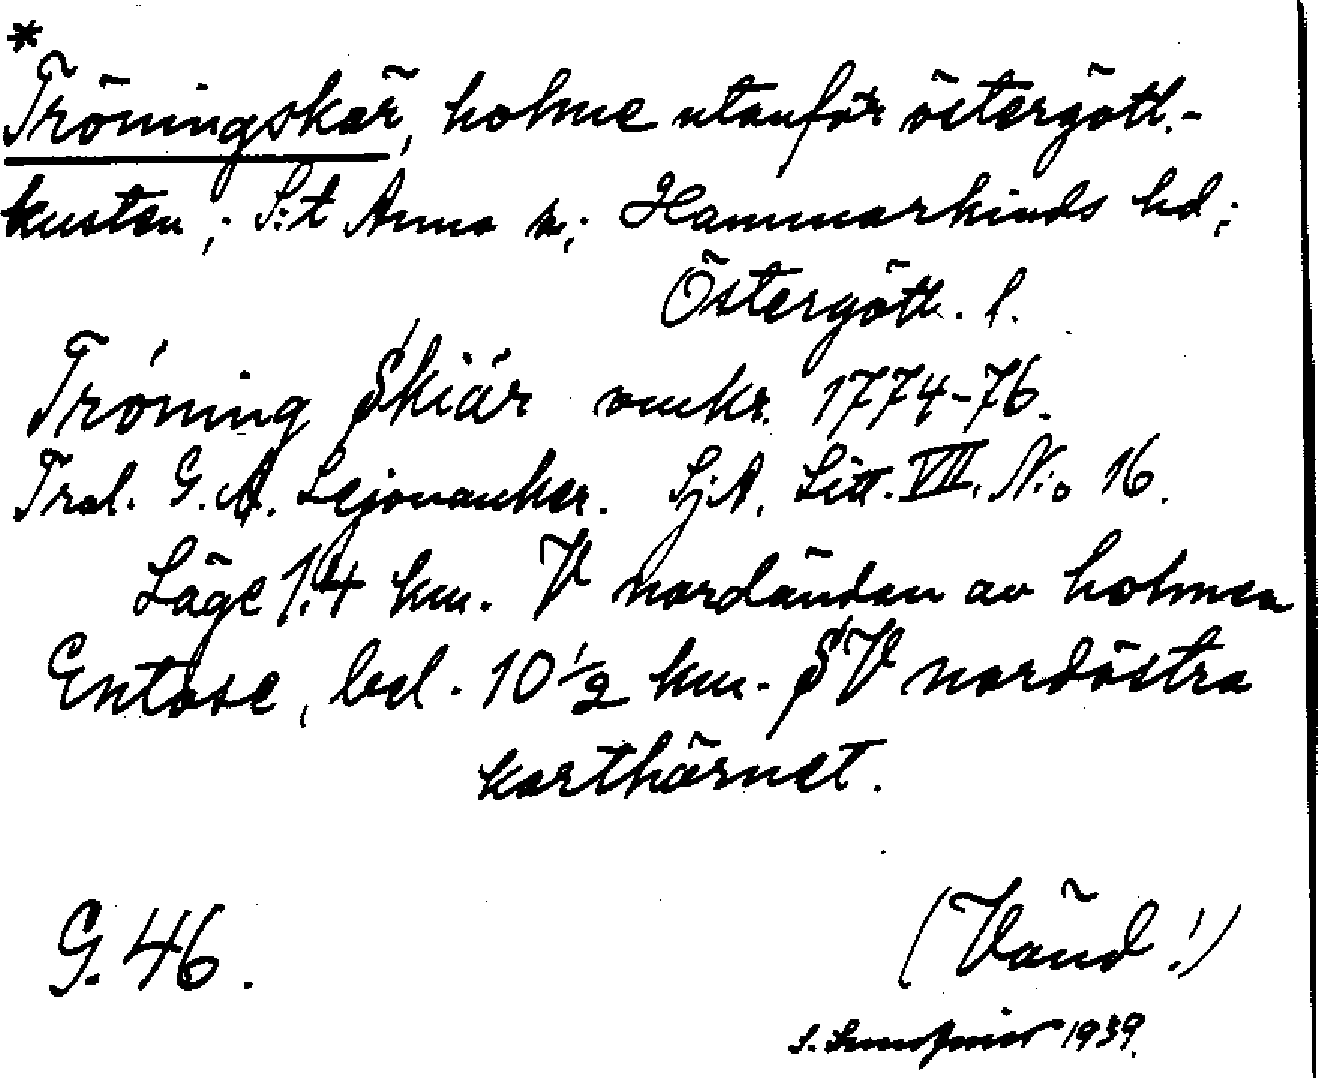 *
Tröningskär, holme utanför östergötl.-
kusten; S:t Anna sn; Hammarkinds hd;
Östergötl. l.
Tróning Skiär omkr. 1774-76.
Trol. G. A. Lejonanker. Sj.A. Litt. VII. N:o 16.
Läge 1.4 km. V nordändan av holmen
Entose, bel. 10 1/2 km. SV nordöstra
karthörnet.
G. 46.
(Vänd!)
S. 1939.